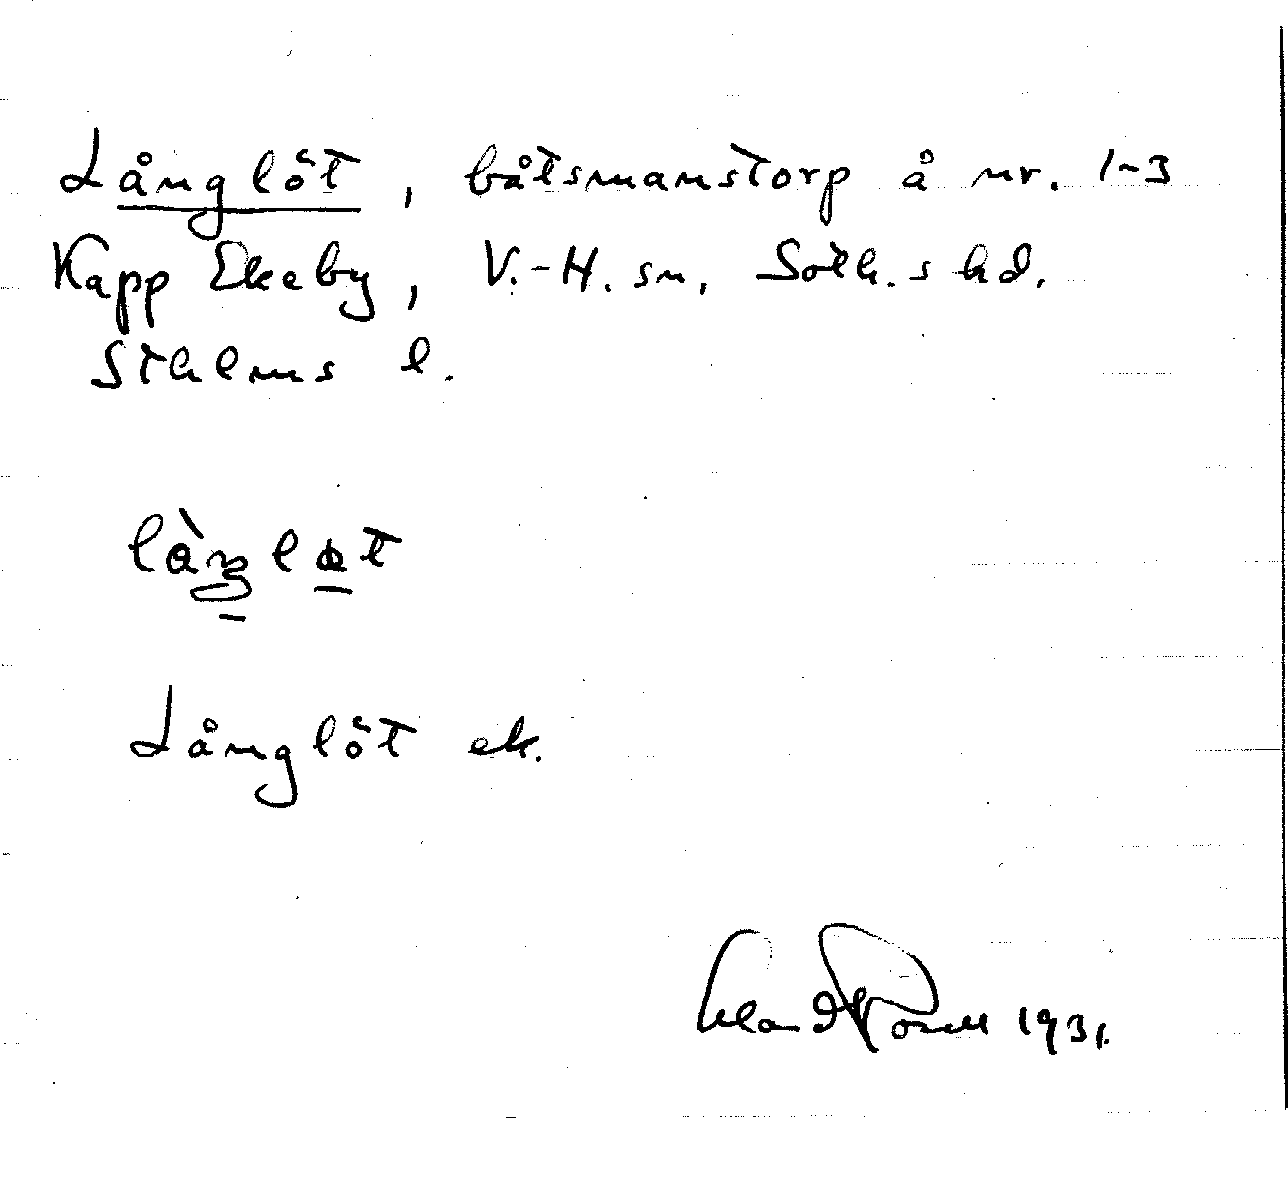 Långlöt, båtsmanstorp å nr. 1-3
Kapp Ekeby, V.-H. sn, Soth.s hd.
Sthlms l.
Långlöt ek.
1931.